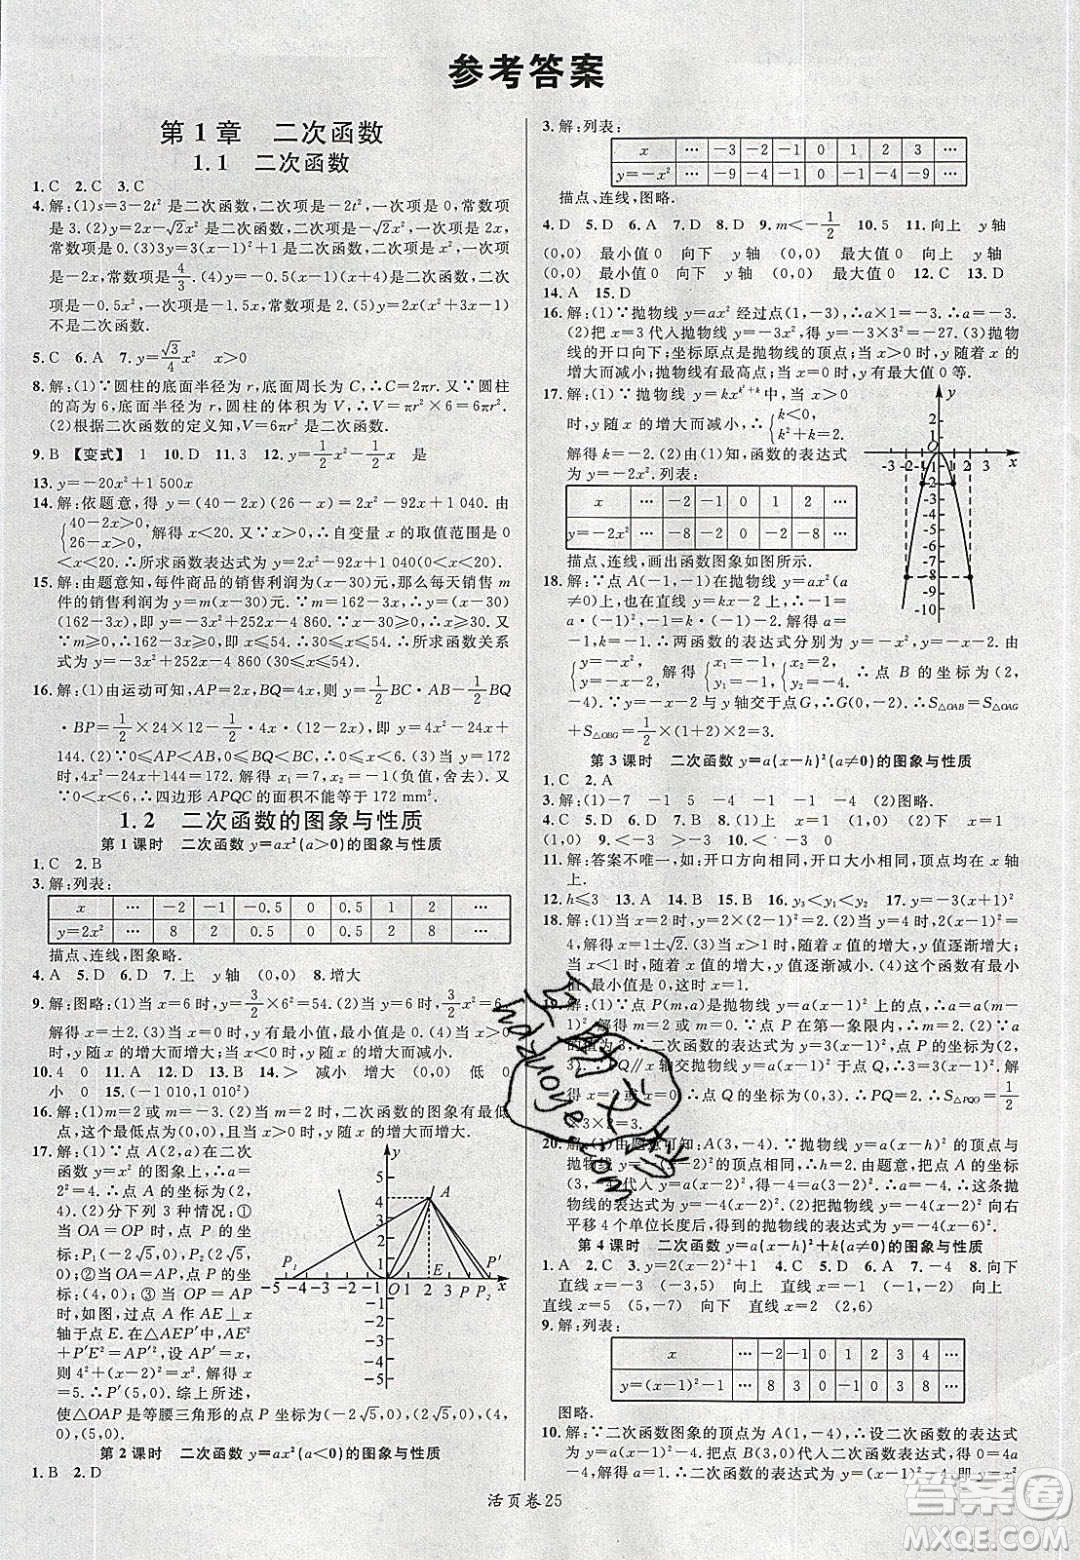 参考答案
第1章　二次函数
1.1　二次函数
1.C　2.C　3.C
4.解:(1)s=3-2t² 是二次函数,二次项是-2t²,一次项是0,常数项
是3.(2)y=2x-√2x² 是二次函数,二次项是-√2x²,一次项是2x,
常数项是0.(3)y=3(x-1)²+1 是二次函数,二次项是3x²,一次项
是-2x,常数项是4/3.(4)y=-0.5(x-1)(x+4)是二次函数,二次
项是-0.5x²,一次项是-1.5x,常数项是2.(5)y=x²+x(3-x-1)
不是二次函数.
5.C　6.A　7.y=√3/4x²　x>0
8.解:(1)∵圆柱的底面半径为r,底面周长为C,∴C=2πr.又∵圆柱
的高为6,底面半径为r,圆柱的体积为V,∴V=πr²×6=6πr².
(2)根据二次函数的定义知,V=6πr²是二次函数.
9.B　【变式】　1　10.D　11.3　12.y=1/2x²-1/2x　是
13.y=-20x²+1 500x
14.解:依题意,得 y=(40-2x)(26-x)=2x²-92x+1 040.由
{40-2x>0, 26-x>0, 解得 x<20.又∵x>0,∴自变量 x 的取值范围是0
<x<20.∴所求函数表达式为y=2x²-92x+1 040(0<x<20).
15.解:由题意知,每件商品的销售利润为(x-30)元,那么每天销售 m
件的销售利润为 y=m(x-30)元.∵m=162-3x,∴y=(x-30)
(162-3x)=-3x²+252x-4 860.∵x-30≥0,∴x≥30.又∵
m≥0,∴162-3x≥0,即x≤54.∴30≤x≤54.∴所求函数关系
式为 y=-3x²+252x-4 860(30≤x≤54).
16.解:(1)由运动可知,AP=2x,BQ=4x,则 y=1/2BC·AB-1/2BQ
·BP=1/2×24×12-1/2·4x·(12-2x),即 y=4x²-24x+
144.(2)∵0≤AP<AB,0≤BQ<BC,∴0≤x<6.(3)当y=172
时,4x²-24x+144=172.解得 x₁=7,x₂=-1(负值,舍去).又
∵0≤x<6,∴四边形 APQC 的面积不能等于 172 mm².
1.2　二次函数的图象与性质
第1课时　二次函数 y=ax²(a>0)的图象与性质
1.C　2.B
3.解:列表:
x … -2 -1 -0.5 0 0.5 1 2 …
y=2x² … 8 2 0.5 0 0.5 2 8 …
描点、连线,图象略.
4.A　5.D　6.D　7.上　y轴　(0,0)　8.增大
9.解:图略;(1)当 x=6 时,y=3/2×6²=54.(2)当 y=6 时,3/2x²=6,
解得 x=±2.(3)当 x=0 时,y 有最小值,最小值是0.(4)当 x>0
时,y随x的增大而增大;当x<0时,y随x的增大而减小.
10.4　0　11.A　12.D　13.C　14.>　减小　增大　>　低　0
小　0　15.(-1 010,1 010²)
16.解:(1)m=2或m=-3.(2)当m=2时,二次函数的图象有最低
点.这个最低点为(0,0),当x>0时,y随x的增大而增大.
17.解:(1)∵点A(2,a)在二次
函数 y=x² 的图象上,∴a=
2²=4.∴点 A 的坐标为(2,
4).(2)分下列3种情况:①
当 OA=OP 时,点 P 的坐
标:P₁(-2√5,0),P₂(2√5,
0);②当 OA=AP 时,点 P
的坐标:(4,0);③当 OP=AP
时,如图,过点 A 作 AE⊥x
轴于点 E.在△AEP′中,AE²
+P′E²=AP′².设 AP′=x,
则 4²+(x-2)²=x².解得 x
=5.∴P′(5,0).综上所述,
使△OAP是等腰三角形的点P坐标为(-2√5,0),(2√5,0),(4,
0),(5,0).
y
5
4
3
2
1
-1
-2
-3
-4
-5
A
P₁
-5-4-3-2-1 O 1 2 3 4 5
E
P
P₂
P′
x
第2课时　二次函数 y=ax²(a<0)的图象与性质
1.B　2.D
3.解:列表:
x … -3 -2 -1 0 1 2 3 …
y=-x² … -9 -4 -1 0 -1 -4 -9 …
描点、连线,图略.
4.D　5.D　6.A　7.D　8.D　9.m<-1/2　10.5　11.向上　y轴
(0,0)　最小值0　向下　y轴　(0,0)　最大值0　向上　y轴
(0,0)　最小值0　向下　y轴　(0,0)　最大值0　12.C　13.D
14.A　15.D
16.解:(1)∵抛物线 y=ax² 经过点(1,-3),∴a×1=-3.∴a=-3.
(2)把 x=3代入抛物线 y=-3x²,得 y=-3×3²=-27.(3)抛物
线的开口向下;坐标原点是抛物线的顶点;当x>0时,y随x的
增大而减小;抛物线有最高点;当x=0时,y有最大值0等.
17.解:(1)∵抛物线 y=kx^(k²+k)中,当 x>0
时,y随x的增大而减小,∴{k<0, k²+k=2.
解得k=-2.∴k=-2.(2)∵函数的表达式
为y=-2x².列表:
x … -2 -1 0 1 2 …
y=-2x² … -8 -2 0 -2 -8 …
描点、连线,画出函数图象如图所示.
y
2
1
O
-3-2-1 1 2 3
x
-1
-2
-3
-4
-5
-6
-7
-8
-9
-10
18.解:∵点 A(-1,-1)在抛物线 y=ax²(a
≠0)上,也在直线 y=kx-2 上,∴-1=
a·(-1)²,-1=k·(-1)-2.解得a=-1,
k=-1.∴两函数的表达式分别为 y=-x²,y=-x-2.由
{y=-x², y=-x-2, 解得{x₁=-1, y₁=-1, {x₂=2, y₂=-4.∴点 B 的坐标为(2,
-4).∵y=-x-2与y轴交于点G,∴G(0,-2).∴S△OAB=S△OAG
+S△OBG=1/2×(1+2)×2=3.
第3课时　二次函数 y=a(x-h)²(a≠0)的图象与性质
1.C　2.A
3.解:(1)-7　-1　5　-1　-4　(2)图略.
4.C　5.D　6.D　7.(1)上　x=1　(1,0)　(2)下　x=1
(1,0)　9.<-3　>-3　10.<-3
11.解:答案不唯一,如开口方向相同,开口大小相同,顶点都在x轴
上.
12.h≤3　13.A　14.B　15.B　16.y₃<y₁<y₂　17.y=-3(x+1)²
18.解:(1)当x=2时,y=2×(2-1)²=2.(2)当y=4时,2(x-1)²
=4,解得 x=1±√2.(3)当x>1时,随着x值的增大,y值逐渐增大;
当x<1时,随着x值的增大,y值逐渐减小.(4)这个函数有
最小值,最小值是0,这时x=1.
19.解:(1)∵点P(m,a)是抛物线 y=a(x-1)²上的点,∴a=a(m-
1)².解得 m=2或m=0.∵点 P 在第一象限内,∴m=2.(2)∵a
的值为3,∴二次函数的表达式为 y=3(x-1)².∵点P的坐标为
(2,3),PQ∥x轴交抛物线
=3.解得x=2或x=0.∴点Q的坐标为(0,3).∴PQ=2.∴S△PQO=1/2
×3×2=3.
20.解:(1)由题意可知:A(3,-4).∵抛物线 y=a(x-h)²的顶点与
抛物线 的顶点相同,∴h=2.由题意,把点A的坐标
(3,-4)代入y=a(x-2)²,得-4=a(3-2)².∴a=-4.∴这条抛
物线的表达式为 y=-4(x-2)².(2)把抛物线 y=-4(x-2)²向右
平移4个单位长度后,得到的抛物线的表达式为y=-4(x-6)².
第4课时　二次函数 y=a(x-h)²+k(a≠0)的图象与性质
1.A　2.C　3.C　4.B　5.D　6.y=2(x-2)²+1　7.y=4　8.向下
直线x=-3　(-3,-5)　向上　直线x=-1　(-1,-2)　向上
直线x=5　(5,-7)　向下　直线x=2　(2,6)
9.解:列表:
x … -2 -1 0 1 2 3 4 …
y=(x-1)²-1 … 8 3 0 -1 0 3 8 …
图略.
10.解:∵二次函数图象的顶点为A(1,-4),∴设二次函数表达式为
y=a(x-1)²-4.将点B(3,0)代入二次函数表达式,得0=4a-
4.解得a=1.∴二次函数表达式为y=(x-1)²-4,即y=x²-
活页卷25
答案圈
MXQE.COM